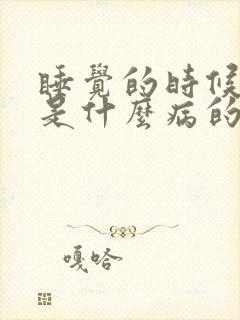 睡覺的時候
是什麼病的
嘎哈